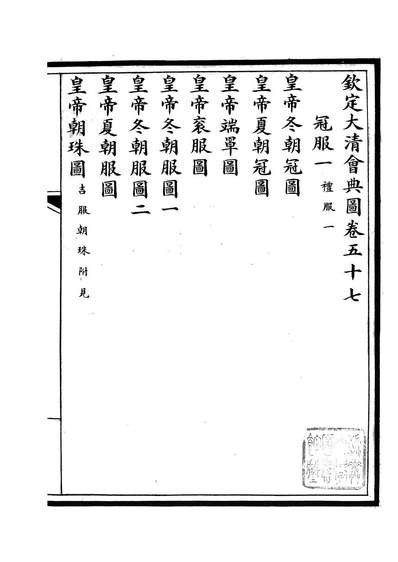 欽定大清會典圖卷五十七
冠服一 禮服一
皇帝冬朝冠圖
皇帝夏朝冠圖
皇帝端罩圖
皇帝袞服圖
皇帝冬朝服圖一
皇帝冬朝服圖二
皇帝夏朝服圖
皇帝朝珠圖 吉服朝珠附見